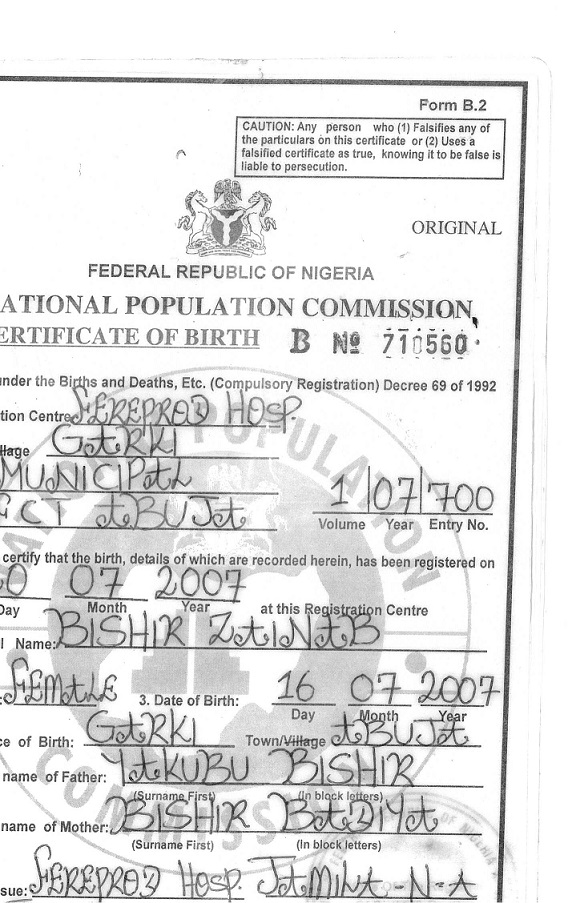 Form B.2
CAUTION: Any person who (1) Falsifies any of
the particulars on this certificate or (2) Uses a
falsified certificate as true, knowing it to be false is
liable to persecution.
ORIGINAL
FEDERAL REPUBLIC OF NIGERIA
ATIONAL POPULATION COMMISSION
ERTIFICATE OF BIRTH B Nº 710560
under the Births and Deaths, Etc. (Compulsory Registration) Decree 69 of 1992
tion Centre FEREPROD HOSP.
llage GARKI
MUNICIPAL
ABUJA 1 07 700
Volume Year Entry No.
certify that the birth, details of which are recorded herein, has been registered on
0 07 2007
Day Month Year at this Registration Centre
l Name: BISHIR ZAINAB
FEMALE 3. Date of Birth: 16 07 2007
Day Month Year
ce of Birth: GARKI Town/Village ABUJA
name of Father: YAKUBU BISHIR
(Surname First) (In block letters)
name of Mother: BISHIR BADIYA
(Surname First) (In block letters)
sue: FEREPROD HOSP. JAMILA-N-A